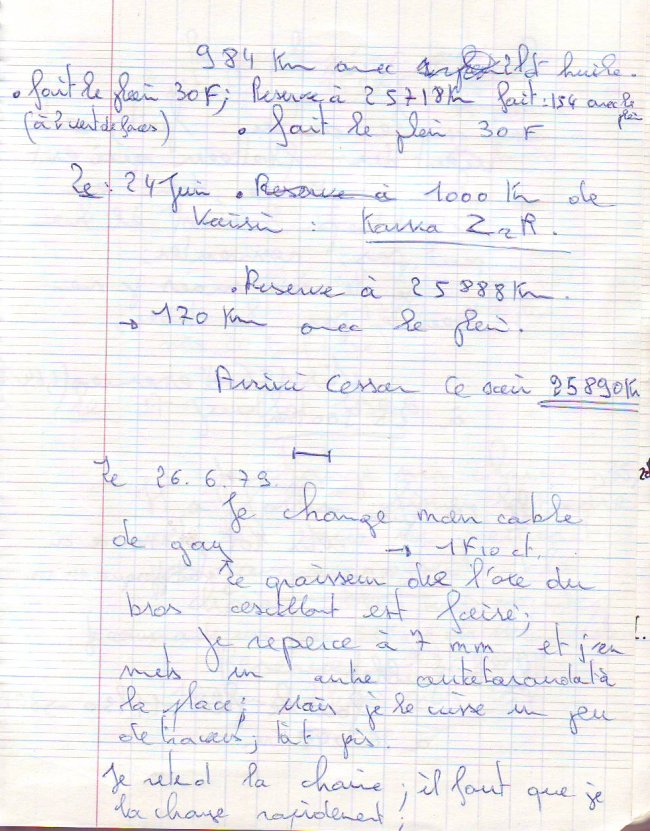 984 Km avec 2lt huile.
• fait le plein 30F; Reserve à 25718Km fait: 154 avec le plein
(à 2 vert de faces) • fait le plein 30 F
Le: 24 Juin • Reserve à 1000 Km de
Vaisin: Kawa Z2R.
• Reserve à 25888Km.
→ 170 Km avec le plein.
Arrivé Cessar Ce soir 25890Km
Le 26.6.79.
Je change mon cable
de gaz → 1F10 ct.
Le graisseur de l'axe du
bras oscillant est foiré;
Je reperce à 7 mm et j'en
mets un autre autotaraudat à
la place; Mais je le visse un peu
de travers; tât pis.
Je retend la chaine; il faut que je
la change rapidement;